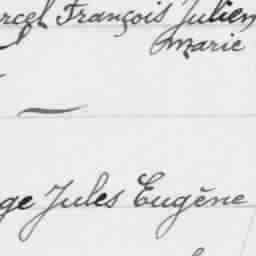 rcel François Julien
Marie
ge Jules Eugène